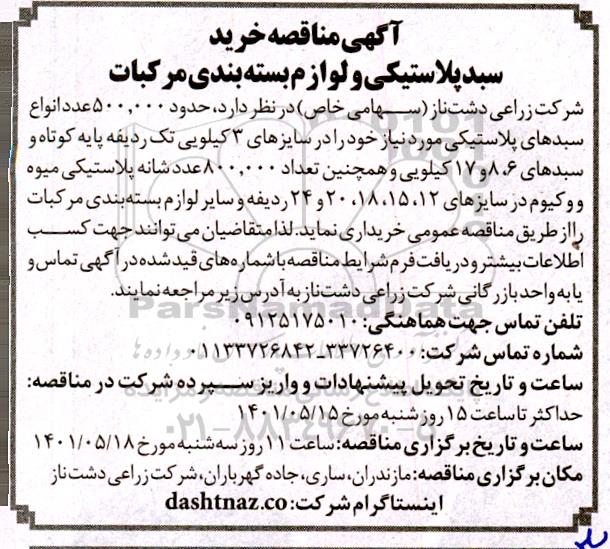 آگهی مناقصه خرید
سبد پلاستیکی و لوازم بسته بندی مرکبات
شرکت زراعی دشت ناز (سهامی خاص) در نظر دارد، حدود ۵۰۰,۰۰۰ عدد انواع
سبدهای پلاستیکی مورد نیاز خود را در سایزهای ۳ کیلویی تک ردیفه پایه کوتاه و
سبدهای ۸،۶ و ۱۷ کیلویی و همچنین تعداد ۸۰۰,۰۰۰ عدد شانه پلاستیکی میوه
و وکیوم در سایزهای ۱۲، ۱۵، ۱۸، ۲۰ و ۲۴ ردیفه و سایر لوازم بسته بندی مرکبات
را از طریق مناقصه عمومی خریداری نماید. لذا متقاضیان می توانند جهت کسب
اطلاعات بیشتر و دریافت فرم شرایط مناقصه با شماره های قید شده در آگهی تماس و
یا به واحد بازرگانی شرکت زراعی دشت ناز به آدرس زیر مراجعه نمایند.
تلفن تماس جهت هماهنگی: ۰۹۱۲۵۱۷۵۰۱۰
شماره تماس شرکت: ۳۳۷۲۶۴۰۰-۰۱۱۳۳۷۲۶۸۴۲
ساعت و تاریخ تحویل پیشنهادات و واریز سپرده شرکت در مناقصه:
حداکثر تا ساعت ۱۵ روز شنبه مورخ ۱۴۰۱/۰۵/۱۵
ساعت و تاریخ برگزاری مناقصه: ساعت ۱۱ روز سه شنبه مورخ ۱۴۰۱/۰۵/۱۸
مکان برگزاری مناقصه: مازندران، ساری، جاده گهرباران، شرکت زراعی دشت ناز
اینستاگرام شرکت: dashtnaz.co
ParsNamadData